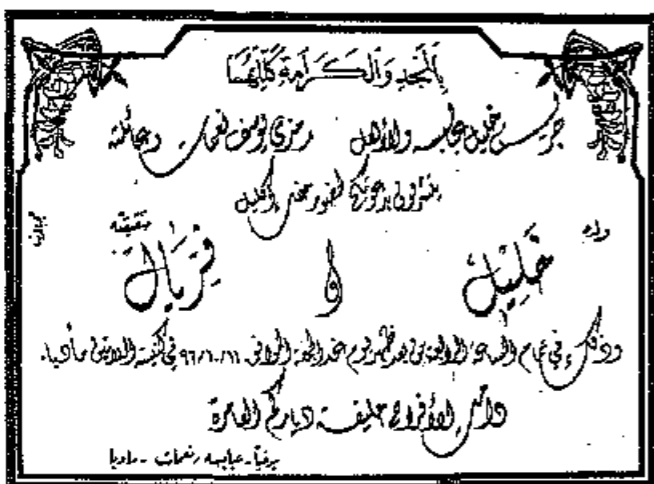 بالمجد والكرامة كللهما
جريس خليل عبابسه والأهل رمزي يوسف نعمات وعائلته
يتشرفون بدعوتكم لحضور حفل إكليل
ولده شقيقته
خليل و فريال
وذلك في تمام الساعة الرابعة من بعد ظهر يوم غد الجمعة الموافق ٩٦/١٠/١١ في كنيسة اللاتين مأدبا.
دامت الأفراح حليفة دياركم العامرة
برقياً - عبابسه ونعمات - مادبا